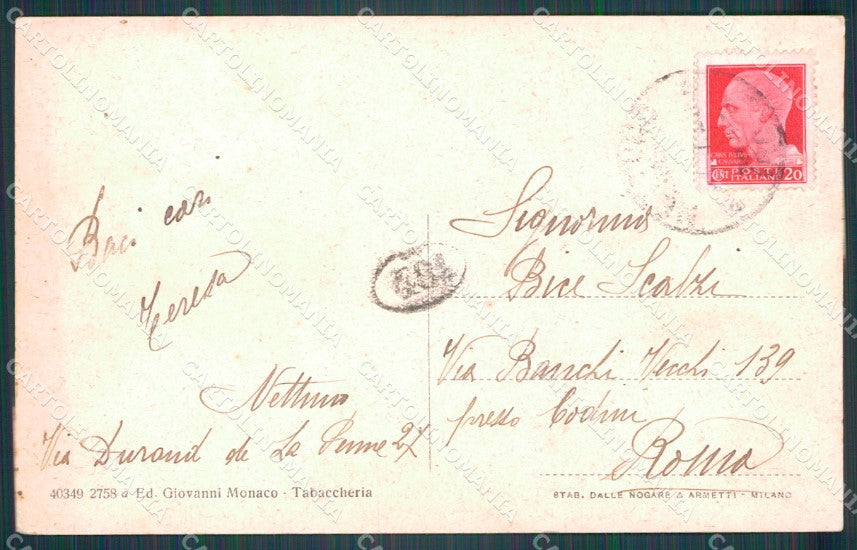 Baci cari
Teresa
Nettuno
Via Durand de La Penne 27
Signorina
Bice Scalzi
Via Banchi Vecchi 139
presso Codini
Roma
POSTE
ITALIANE
CENT 20
40349 2758 a Ed. Giovanni Monaco - Tabaccheria
STAB. DALLE NOGARE & ARMETTI - MILANO
CARTOLINOMANIA